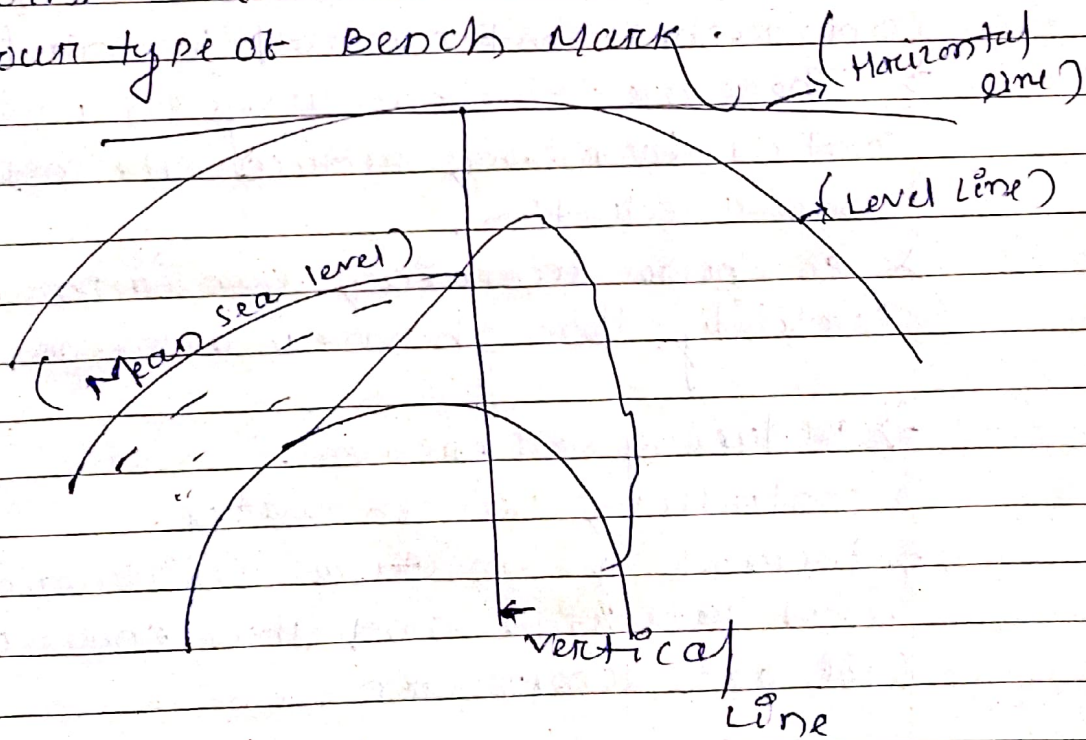 our type of Bench Mark.
(Horizontal
Line)
(Level Line)
(Mean sea level)
vertical
Line